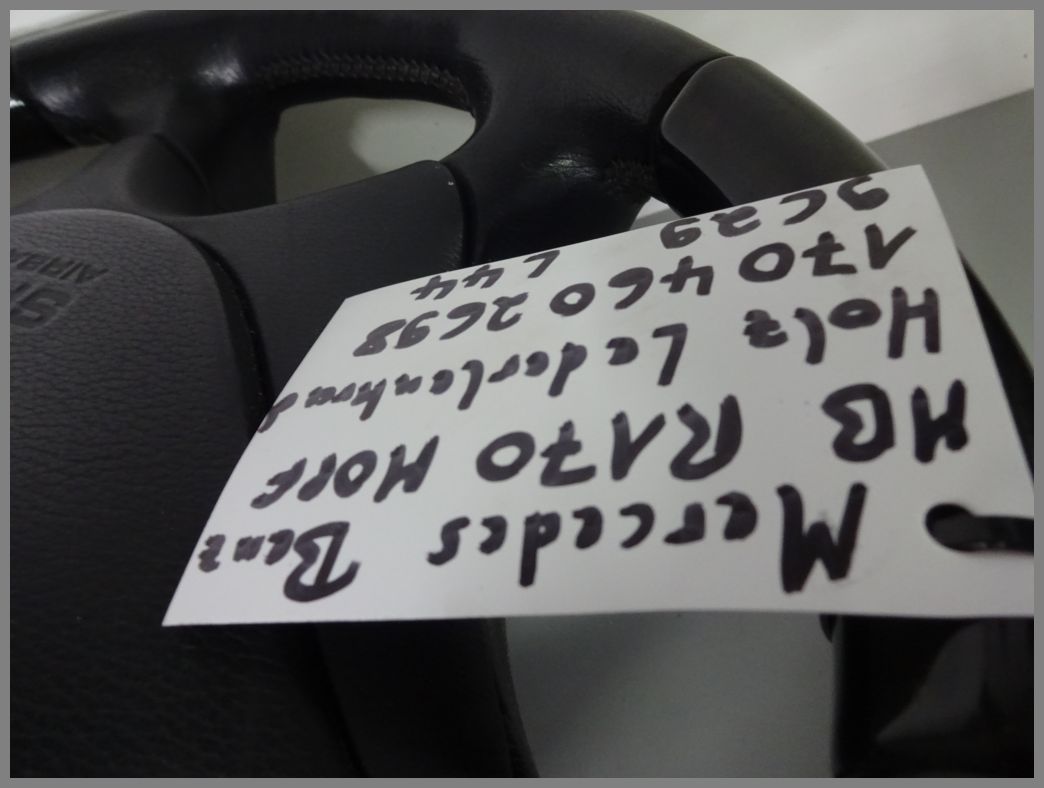 Mercedes Benz
MB R170 MOPF
Holz Lederlenkrad
170 460 2698
9C29 L44